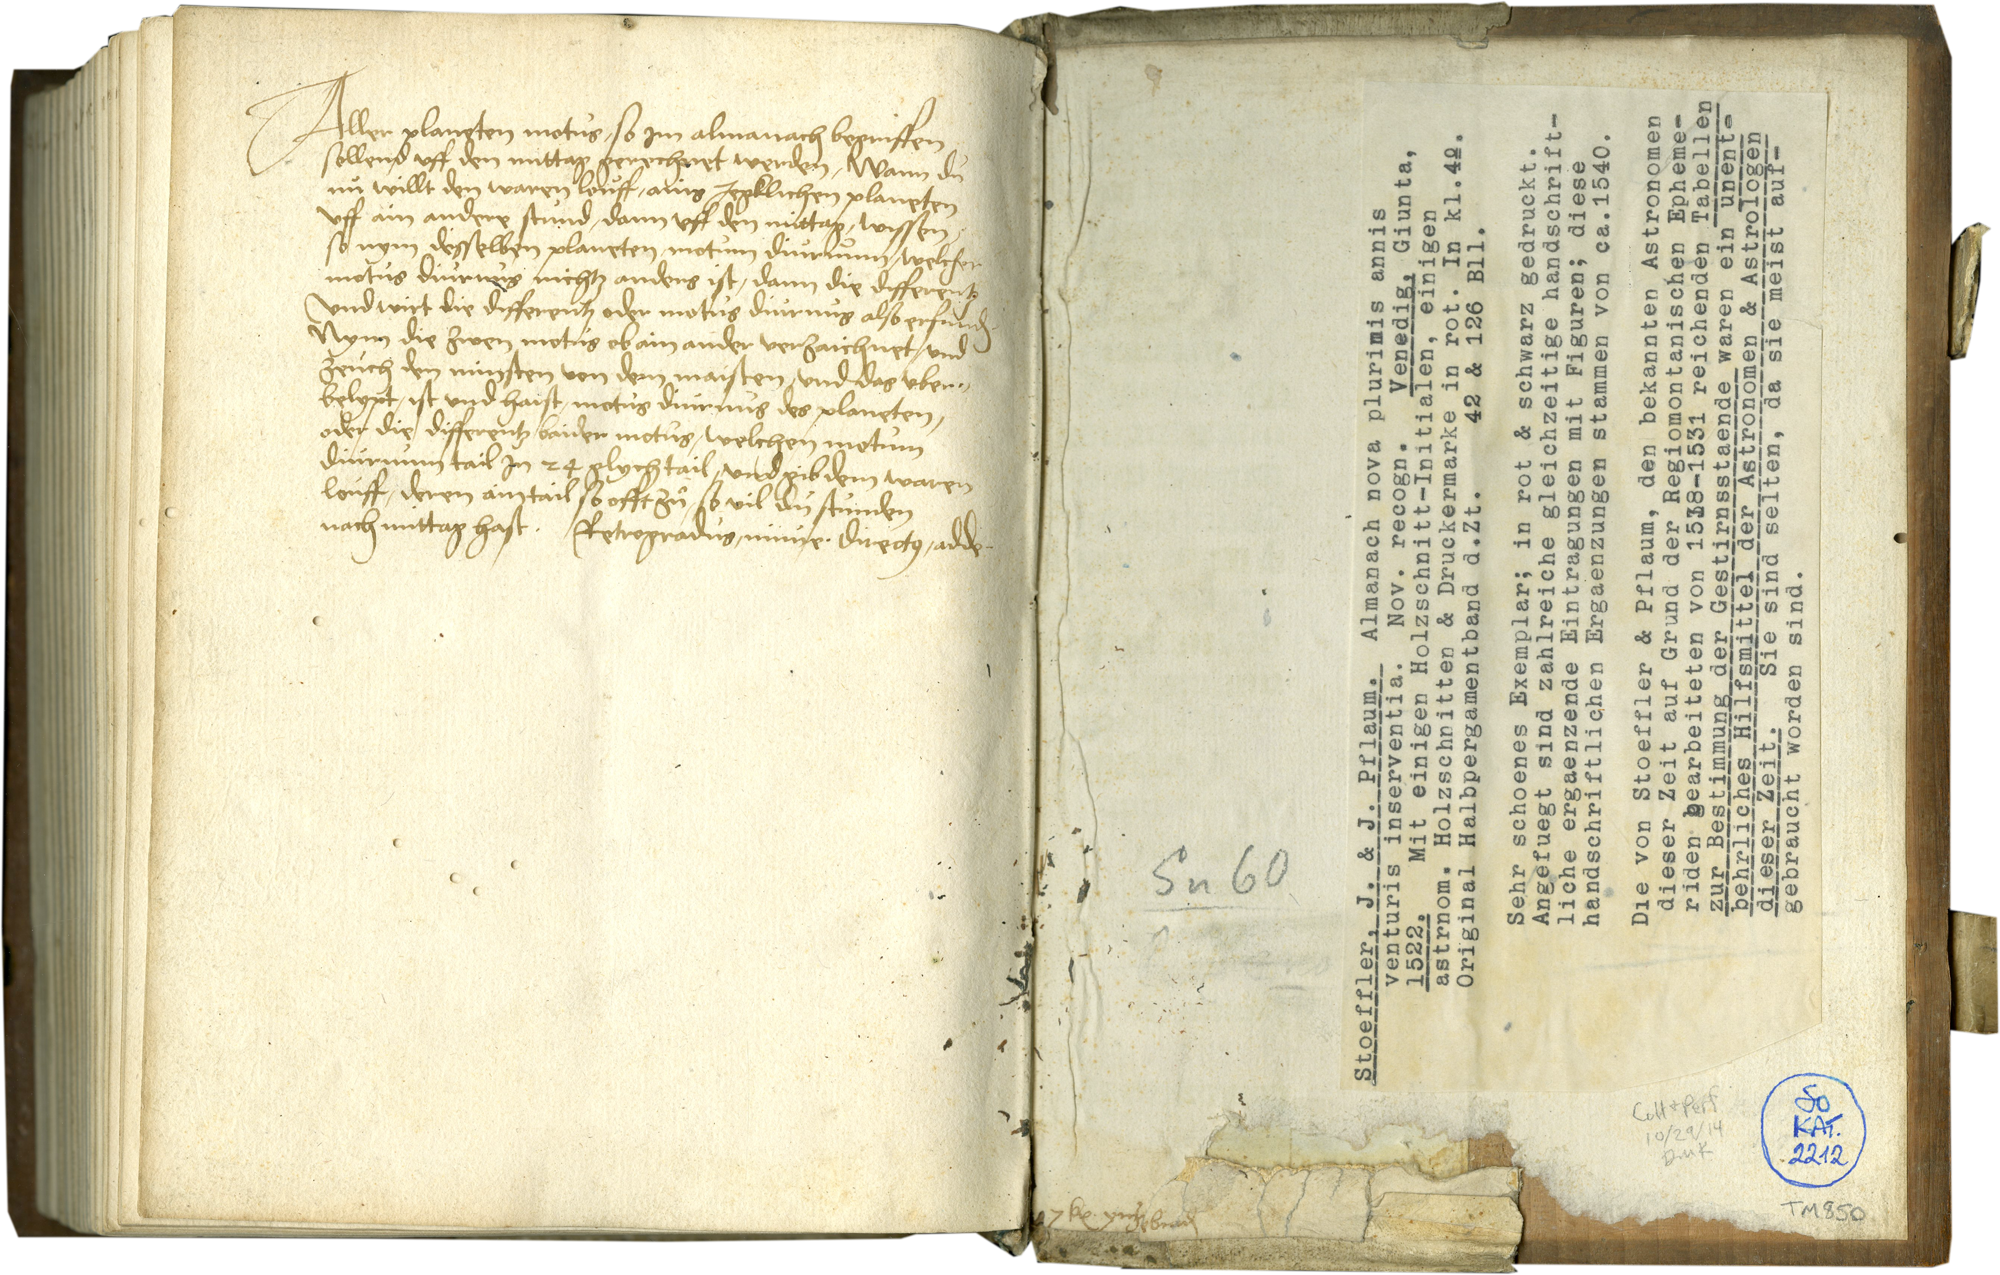 Aller planeten motus, so jm almanach begriffen
sollend vff den mittag gerechnet werden, Wann du
nu willt den waren louff, ains yegklichen planeten
vff ain andere stund, dann vff den mittag, wissen,
so nym desselben planeten motum diurnum, welcher
motus diurnus nichtz anders ist, dann die differentz
vnd wirt die differentz oder motus diurnus also erfunden
Nym die zwen motus ob ain ander verzaichnet, vnd
zeuch den minsten von dem maisten, vnd das vber-
belypt, ist vnd haist, motus diurnus des planeten,
oder die differentz baider motus, welchen motum
diurnum tail jn 24 glych tail, vnd gib dem waren
louff, deren ain tail so offt zu, so vil du stunden
nach mittag hast. Retrogradus, minue. direct9, adde.
Stoeffler, J. & J. Pflaum. Almanach nova plurimis annis
venturis inserventia. Nov. recogn. Venedig, Giunta,
1522. Mit einigen Holzschnitt-Initialen, einigen
astrnom. Holzschnitten & Druckermarke in rot. In kl.4º.
Original Halbpergamentband d.Zt. 42 & 126 Bll.
Sehr schoenes Exemplar; in rot & schwarz gedruckt.
Angefuegt sind zahlreiche gleichzeitige handschrift-
liche ergaenzende Eintragungen mit Figuren; diese
handschriftlichen Ergaenzungen stammen von ca.1540.
Die von Stoeffler & Pflaum, den bekannten Astronomen
dieser Zeit auf Grund der Regiomontanischen Epheme-
riden bearbeiteten von 1518-1531 reichenden Tabellen
zur Bestimmung der Gestirnsstaende waren ein unent-
behrliches Hilfsmittel der Astronomen & Astrologen
dieser Zeit. Sie sind selten, da sie meist auf-
gebraucht worden sind.
Sn 60
Coll + Perf
10/29/14
DMK
So
KAT.
2212
TM850